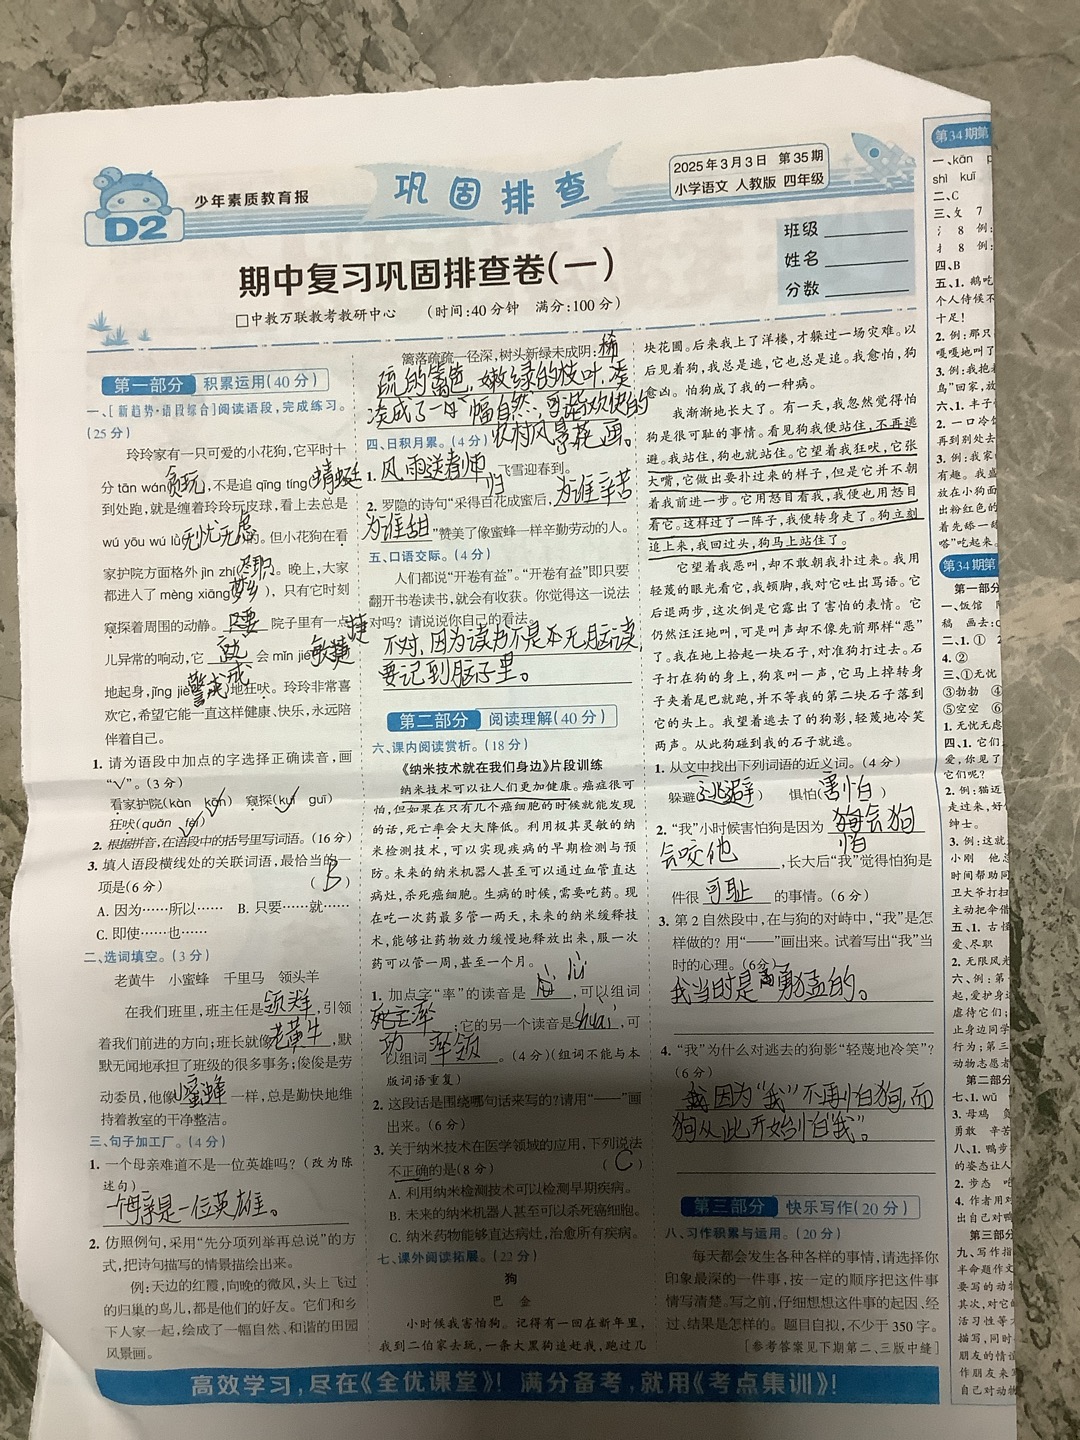 D2
少年素质教育报
巩固排查
2025年3月3日 第35期
小学语文 人教版 四年级
期中复习巩固排查卷(一)
□中教万联教考教研中心 (时间:40分钟 满分:100分)
班级
姓名
分数
第一部分 积累运用(40分)
一、[新趋势·语段综合]阅读语段,完成练习。
(25分)
玲玲家有一只可爱的小花狗,它平时十
分 tān wán(贪玩),不是追 qīng tíng(蜻蜓)
到处跑,就是缠着玲玲玩皮球,看上去总是
wú yōu wú lǜ(无忧无虑)。但小花狗在看
家护院方面格外 jìn zhí(尽职)。晚上,大家
都进入了 mèng xiāng(梦乡),只有它时刻
窥探着周围的动静。只要 院子里有一点
儿异常的响动,它 就 会 mǐn jié(敏捷)
地起身,jǐng jiè(警戒)地狂吠。玲玲非常喜
欢它,希望它能一直这样健康、快乐,永远陪
伴着自己。
1. 请为语段中加点的字选择正确读音,画
“√”。(3分)
看家护院(kàn kān√) 窥探(kuī√ guī)
狂吠(quǎn fèi√)
2. 根据拼音,在语段中的括号里写词语。(16分)
3. 填入语段横线处的关联词语,最恰当的一
项是(6分) (B)
A. 因为……所以…… B. 只要……就……
C. 即使……也……
二、选词填空。(3分)
老黄牛 小蜜蜂 千里马 领头羊
在我们班里,班主任是领头羊,引领
着我们前进的方向;班长就像老黄牛,默
默无闻地承担了班级的很多事务;俊俊是劳
动委员,他像小蜜蜂一样,总是勤快地维
持着教室的干净整洁。
三、句子加工厂。(4分)
1. 一个母亲难道不是一位英雄吗?(改为陈
述句)
一个母亲是一位英雄。
2. 仿照例句,采用“先分项列举再总说”的方
式,把诗句描写的情景描绘出来。
例:天边的红霞,向晚的微风,头上飞过
的归巢的鸟儿,都是他们的好友。它们和乡
下人家一起,绘成了一幅自然、和谐的田园
风景画。
篱落疏疏一径深,树头新绿未成阴:稀
疏的篱笆,嫩绿的枝叶,凑
凑成了一幅自然,可谐欢快的
农村风景画。
四、日积月累。(4分)
1. 风雨送春归,飞雪迎春到。
2. 罗隐的诗句“采得百花成蜜后,为谁辛苦
为谁甜”赞美了像蜜蜂一样辛勤劳动的人。
五、口语交际。(4分)
人们都说“开卷有益”。“开卷有益”即只要
翻开书卷读书,就会有收获。你觉得这一说法
对吗?请说说你自己的看法。
不对,因为读书不是本无脑读,
要记到脑子里。
第二部分 阅读理解(40分)
六、课内阅读赏析。(18分)
《纳米技术就在我们身边》片段训练
纳米技术可以让人们更加健康。癌症很可
怕,但如果在只有几个癌细胞的时候就能发现
的话,死亡率会大大降低。利用极其灵敏的纳
米检测技术,可以实现疾病的早期检测与预
防。未来的纳米机器人甚至可以通过血管直达
病灶,杀死癌细胞。生病的时候,需要吃药。现
在吃一次药最多管一两天,未来的纳米缓释技
术,能够让药物效力缓慢地释放出来,服一次
药可以管一周,甚至一个月。
1. 加点字“率”的读音是 lǜ ,可以组词
死亡率;它的另一个读音是shuài,可
以组词 率领 。(4分)(组词不能与本
版词语重复)
2. 这段话是围绕哪句话来写的?请用“——”画
出来。(6分)
3. 关于纳米技术在医学领域的应用,下列说法
不正确的是(8分) (C)
A. 利用纳米检测技术可以检测早期疾病。
B. 未来的纳米机器人甚至可以杀死癌细胞。
C. 纳米药物能够直达病灶,治愈所有疾病。
七、课外阅读拓展。(22分)
狗
巴 金
小时候我害怕狗。记得有一回在新年里,
我到二伯家去玩,一条大黑狗追赶我,跑过几
块花圃。后来我上了洋楼,才躲过一场灾难。以
后见着狗,我总是逃,它也总是追。我愈怕,狗
愈凶。怕狗成了我的一种病。
我渐渐地长大了。有一天,我忽然觉得怕
狗是很可耻的事情。看见狗我便站住,不再逃
避。我站住,狗也就站住。它望着我狂吠,它张
大嘴,它做出要扑过来的样子,但是它并不朝
着我前进一步。它用怒目看我,我便也用怒目
看它。这样过了一阵子,我便转身走了。狗立刻
追上来,我回过头,狗马上站住了。
它望着我恶叫,却不敢朝我扑过来。我用
轻蔑的眼光看它,我顿脚,我对它吐出骂语。它
后退两步,这次倒是它露出了害怕的表情。它
仍然汪汪地叫,可是叫声却不像先前那样“恶”
了。我在地上拾起一块石子,对准狗打过去。石
子打在狗的身上,狗哀叫一声,它马上掉转身
子夹着尾巴就跑,并不等我的第二块石子落到
它的头上。我望着逃去了的狗影,轻蔑地冷笑
两声。从此狗碰到我的石子就逃。
1. 从文中找出下列词语的近义词。(4分)
躲避(逃避) 惧怕(害怕)
2. “我”小时候害怕狗是因为 狗会
会咬他 ,长大后“我”觉得怕狗是
件很 可耻 的事情。(6分)
3. 第2自然段中,在与狗的对峙中,“我”是怎
样做的?用“——”画出来。试着写出“我”当
时的心理。(6分)
我当时是勇猛的。
4. “我”为什么对逃去的狗影“轻蔑地冷笑”?
(6分)
因为“我”不再怕狗,而
狗从此开始怕“我”。
第三部分 快乐写作(20分)
八、习作积累与运用。(20分)
每天都会发生各种各样的事情,请选择你
印象最深的一件事,按一定的顺序把这件事
情写清楚。写之前,仔细想想这件事的起因、经
过、结果是怎样的。题目自拟,不少于350字。
[参考答案见下期第二、三版中缝]
高效学习,尽在《全优课堂》!满分备考,就用《考点集训》!
第34期第
一、kān
shì kuī
二、C
三、攵 7
氵 8 例:
扌 8 例:
四、B
五、1. 鹅吃
个人侍候不
十足!
2. 例:那只
嘎嘎地叫了
3. 例:我抱着
鸟”回家,放
六、1. 丰子
2. 一口冷饭
再到别处去
3. 例:我家
有趣。我盛
放在小狗面
出粉红色的
着先舔一舔
嗒”吃起来。
第34期第
第一部分
一、饭馆
稿 画去:
二、1. ① 2
4. ②
三、①无忧
③勃勃 ④
⑤空空 ⑥
1. 无忧无虑
四、1. 它们
爱,你见了
它们呢?
2. 例:猫迈
走过来,好像
绅士。
3. 例:这就
小刚 他总
时间帮助同
卫大爷打扫
主动把命借
五、1. 古怪
爱、尽职
2. 无限风光
六、例:第
起,爱护身边
虐待它们;
止身边同学
行为;第三
动物志愿者
第二部分
七、1. wū
3. 母鸡 负
勇敢 辛苦
八、1. 鸭步
的姿态让人
2. 步态 吃
4. 作者用对
出自己对鸭
第三部分
九、写作指
半命题作文
要写的动物
其次,对它的
活习性等方
描写,同时
朋友的情谊
作朋友来写
自己对动物